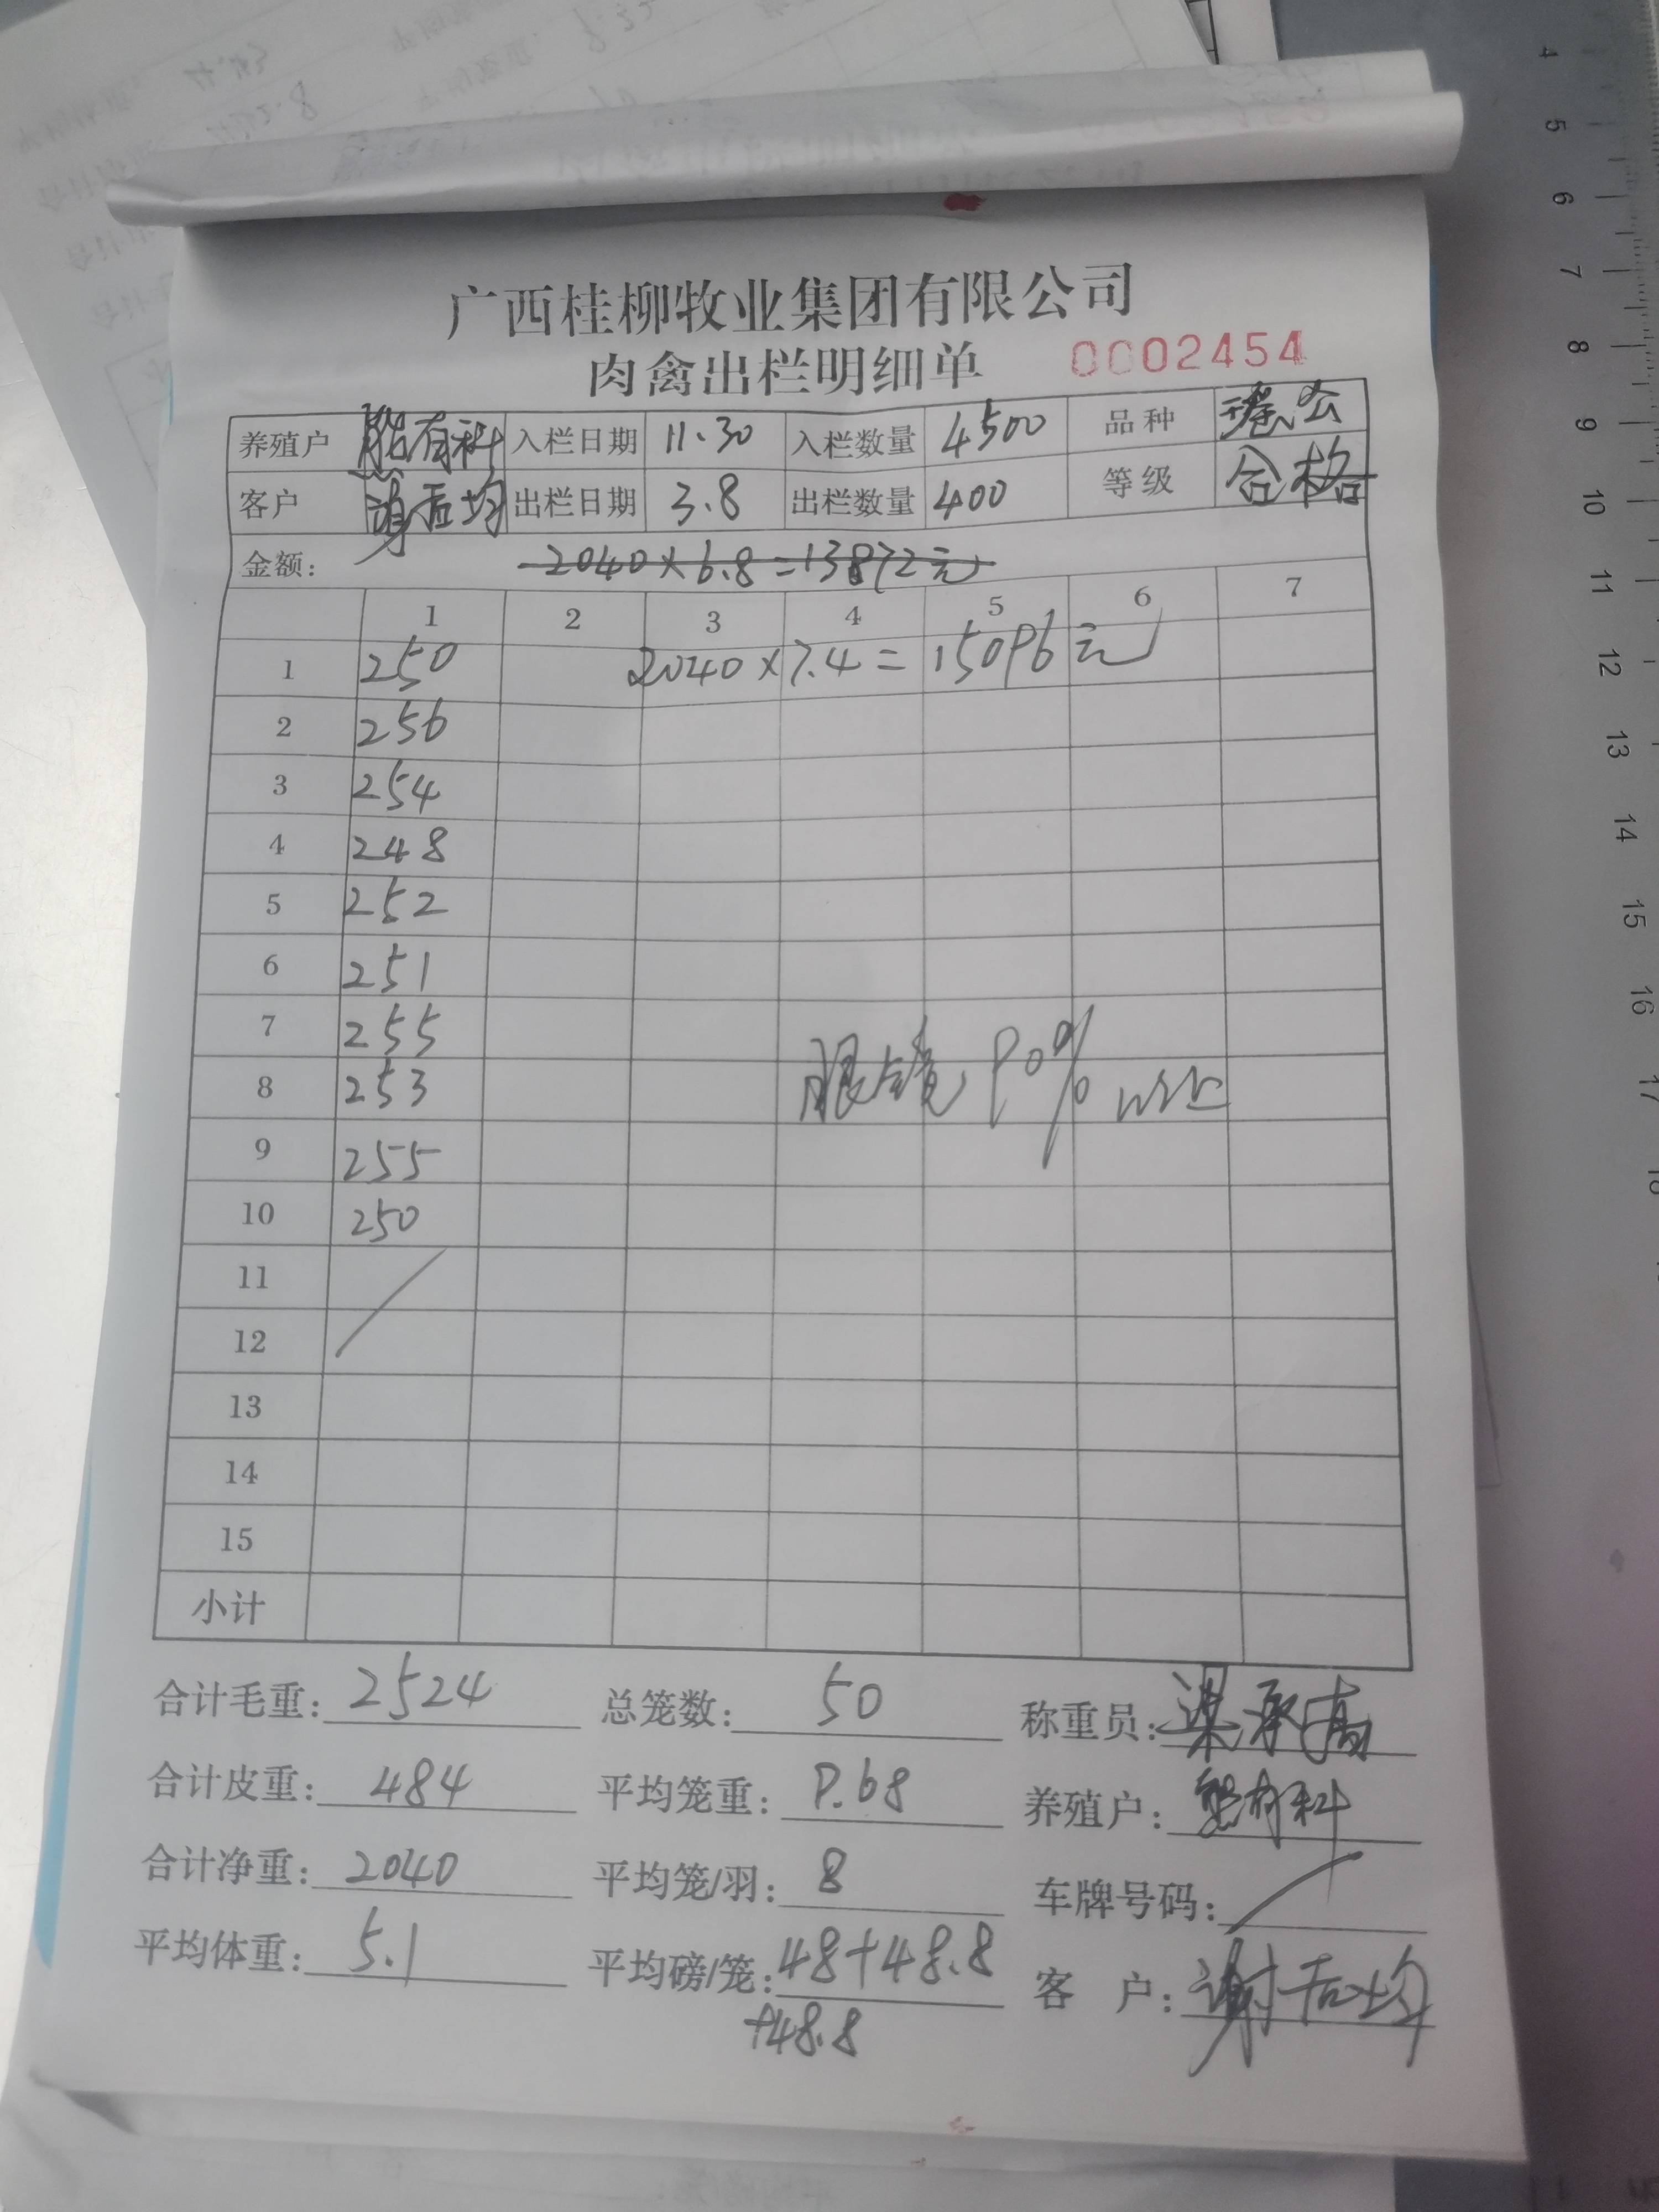 广西桂柳牧业集团有限公司
肉禽出栏明细单 0002454
养殖户 熊有科 入栏日期 11.30 入栏数量 4500 品种 瑶公
客户 谢后均 出栏日期 3.8 出栏数量 400 等级 合格
金额： 2040×6.8=13872元
1 2 3 4 5 6 7
1 250 2040×7.4=15096元
2 256
3 254
4 248
5 252
6 251
7 255
8 253 眼镜90%以上
9 255
10 250
11
12
13
14
15
小计
合计毛重：2524 总笼数：50 称重员：梁承高
合计皮重：484 平均笼重：9.68 养殖户：熊有科
合计净重：2040 平均笼/羽：8 车牌号码：/
平均体重：5.1 平均磅/笼：48+48.8 客户：谢后均
+48.8
4
5
6
7
8
9
10
11
12
13
14
15
16
17